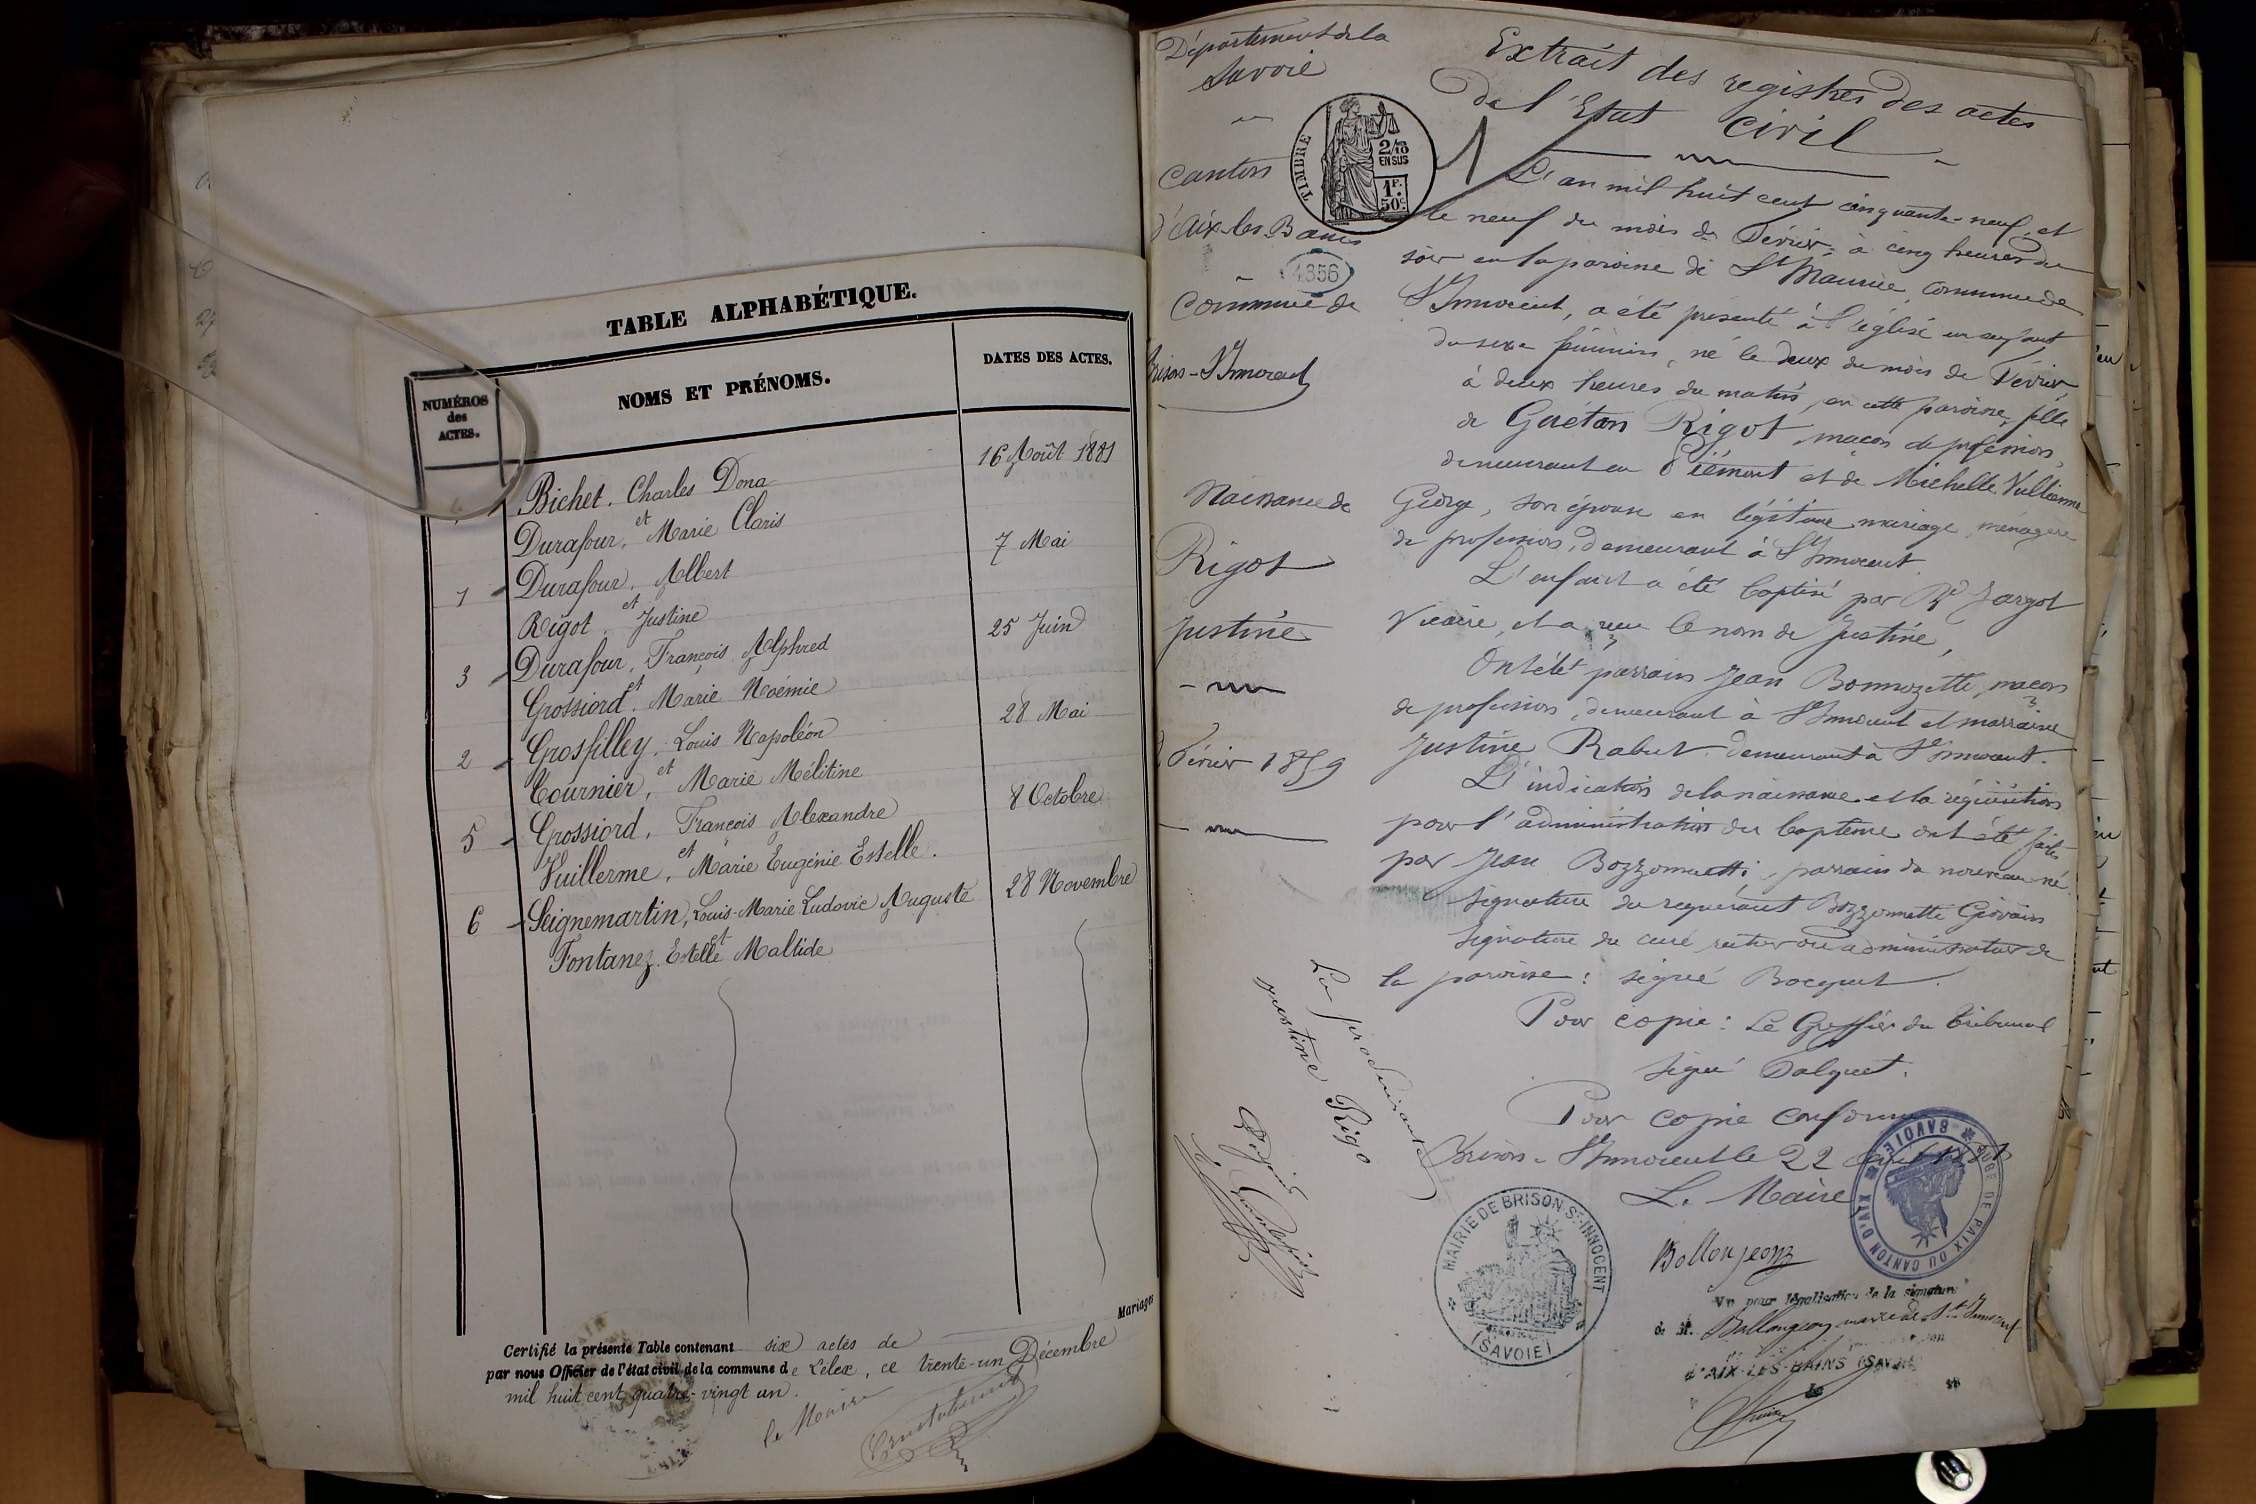 TABLE ALPHABÉTIQUE.
NUMÉROS
des
ACTES.
NOMS ET PRÉNOMS.
DATES DES ACTES.
Bichet. Charles Dona 16 Août 1881
et
Durafour, Marie Claris
1 Durafour, Albert 7 Mai
et
Rigot, Justine
3 Durafour, François Alphred 25 Juin
et
Grossiord, Marie Noémie
2 Grosfilley, Louis Napoléon 28 Mai
et
Tournier, Marie Mélitine
5 Grossiord, François Alexandre 8 Octobre
et
Vuillerme, Marie Eugénie Estelle.
6 Seignemartin, Louis-Marie Ludovic Auguste 28 Novembre
et
Fontanez Estelle Maltide
Mariages
Certifié la présente Table contenant six actes de
par nous Officier de l'état civil de la commune de Lélex, ce trente-un Décembre
mil huit cent quatre-vingt un.
le Maire
Département de la
Savoie
Canton
d'Aix-les-Bains
4356
Commune de
Brison-St Innocent
Naissance de
Rigot
Justine
2 Février 1859
TIMBRE
2/10
EN SUS
1F.
50c.
Extrait des registres des actes
de l'Etat civil
L'an mil huit cent cinquante-neuf et
le neuf du mois de Février à cinq heures du
soir en la paroisse de St Maurice, Commune de
St Innocent, a été présenté à l'église un enfant
du sexe féminin, né le deux du mois de Février
à deux heures du matin, en cette paroisse, fille
de Gaétan Rigot, maçon de profession,
demeurant en Piémont et de Michelle Vullienne
George, son épouse en légitime mariage, ménagère
de profession, demeurant à St Innocent.
L'enfant a été baptisé par Rd Jargot
Vicaire, et a reçu le nom de Justine,
Ont été parrain Jean Bonnozette, maçon
de profession, demeurant à St Innocent et marraine
Justine Rabut demeurant à St Innocent.
L'indication de la naissance et la réquisition
pour l'administration du baptême ont été faites
par Jean Bozzonnetti, parrain du nouveau-né.
Signature du requérant Bozzonnette Giovani
Signature du curé, recteur ou administrateur de
la paroisse: signé Bocquet.
Pour copie: Le Greffier du tribunal
signé Dalquet.
Pour copie conforme
Brison-St Innocent le 22
Le Maire
Bollonjeon
La produisante
justine Rigo
MAIRIE DE BRISON-ST-INNOCENT
(SAVOIE)
JUGE DE PAIX DU CANTON D'AIX
SAVOIE
Vu pour légalisation de la signature
de M. Bollonjeon maire de St Innocent
d'AIX-LES-BAINS (SAVOIE)
le